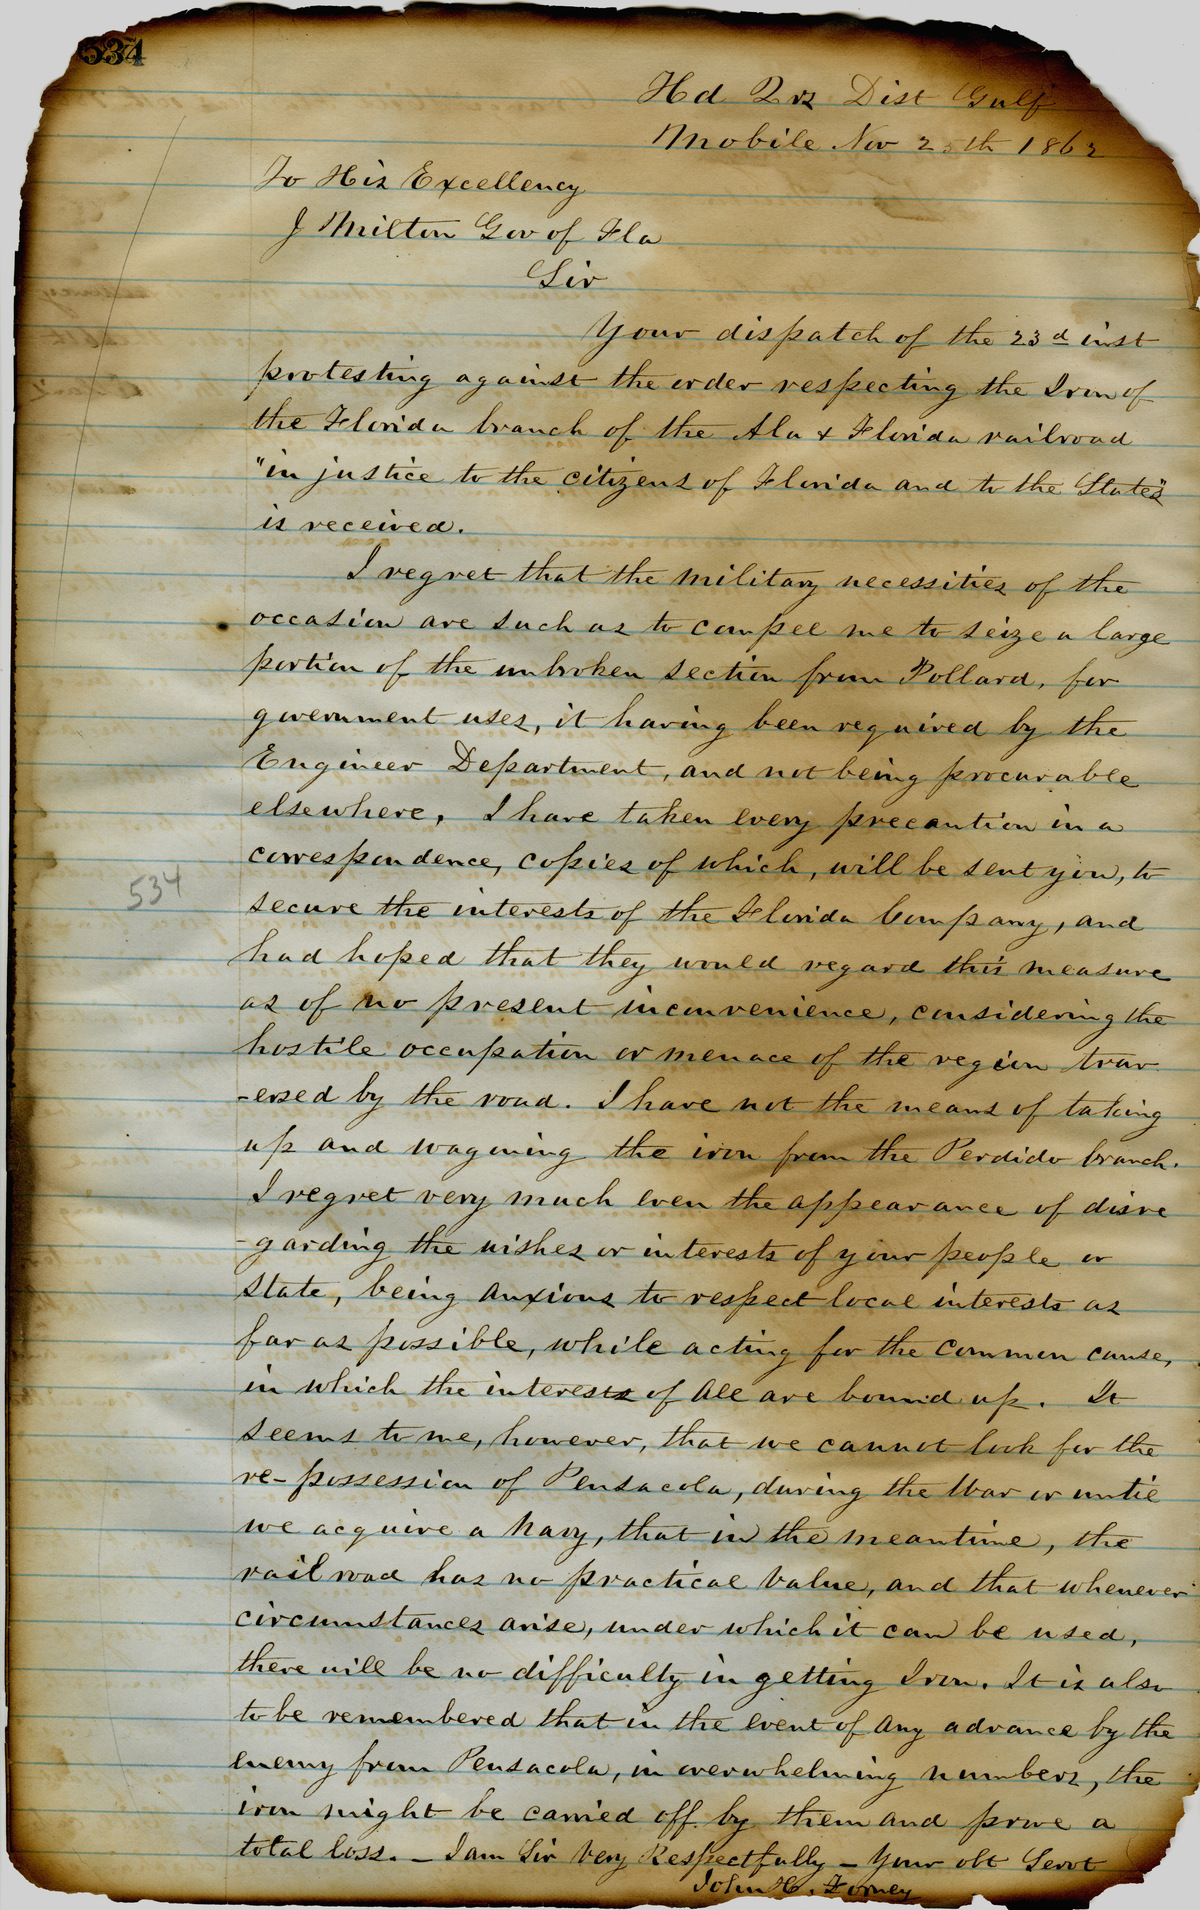 534
Hd Qrs Dist Gulf
Mobile Nov 25th 1862
To His Excellency
J Milton Gov of Fla
Sir
Your dispatch of the 23d inst
protesting against the order respecting the Iron of
the Florida branch of the Ala & Florida railroad
"in justice to the citizens of Florida and to the State"
is received.
I regret that the military necessities of the
occasion are such as to compel me to seize a large
portion of the unbroken section from Pollard, for
government uses, it having been required by the
Engineer Department, and not being procurable
elsewhere. I have taken every precaution in a
correspondence, copies of which, will be sent you, to
534
secure the interests of the Florida Company, and
had hoped that they would regard this measure
as of no present inconvenience, considering the
hostile occupation or menace of the region trav
-ersed by the road. I have not the means of taking
up and wagoning the iron from the Perdido branch.
I regret very much even the appearance of disre
-garding the wishes or interests of your people or
state, being anxious to respect local interests as
far as possible, while acting for the common cause,
in which the interests of all are bound up. It
seems to me, however, that we cannot look for the
re-possession of Pensacola, during the War or until
we acquire a Navy, that in the meantime, the
railroad has no practical value, and that whenever
circumstances arise, under which it can be used,
there will be no difficulty in getting Iron. It is also
to be remembered that in the event of any advance by the
enemy from Pensacola, in overwhelming numbers, the
iron might be carried off by them and prove a
total loss. - I am Sir Very Respectfully - Your obt Servt
John H. Forney